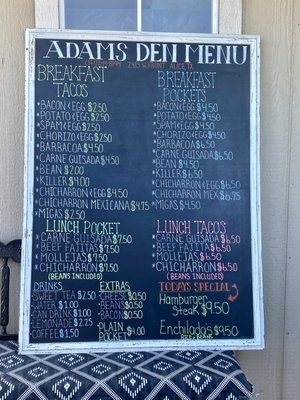 ADAMS DEN MENU
2413 W. FRONT ALICE, TX
BREAKFAST
TACOS
*BACON & EGG $2.50
*POTATO & EGG $2.50
*SPAM & EGG $2.50
*CHORIZO & EGG $2.50
*BARBACOA $4.50
*CARNE GUISADA $4.50
*BEAN $2.00
*KILLER $4.00
*CHICHARRON & EGG $4.50
*CHICHARRON MEXICANA $4.75
*MIGAS $2.50
BREAKFAST
POCKETS
*BACON & EGG $4.50
*POTATO & EGG $4.50
*SPAM & EGG $4.50
*CHORIZO & EGG $4.50
*BARBACOA $6.50
*CARNE GUISADA $6.50
*BEAN $4.50
*KILLER $6.50
*CHICHARRON & EGG $6.50
*CHICHARRON MEX $6.75
*MIGAS $4.50
LUNCH POCKET
*CARNE GUISADA $7.50
*BEEF FAJITAS $7.50
*MOLLEJAS $7.50
*CHICHARRON $7.50
(BEANS INCLUDED)
LUNCH TACOS
*CARNE GUISADA $6.50
*BEEF FAJITA $6.50
*MOLLEJAS $6.50
*CHICHARRON $6.50
(BEANS INCLUDED)
DRINKS
SWEET TEA $2.50
WATER $1.00
CAN DRINK $1.00
LEMONADE $2.25
COFFEE $1.50
EXTRAS
*CHEESE $0.50
*BEANS $0.50
*BACON $0.50
PLAIN
POCKET $4.00
TODAYS SPECIAL
Hamburger
Steak $9.50
Enchiladas $9.50
RICE & BEANS